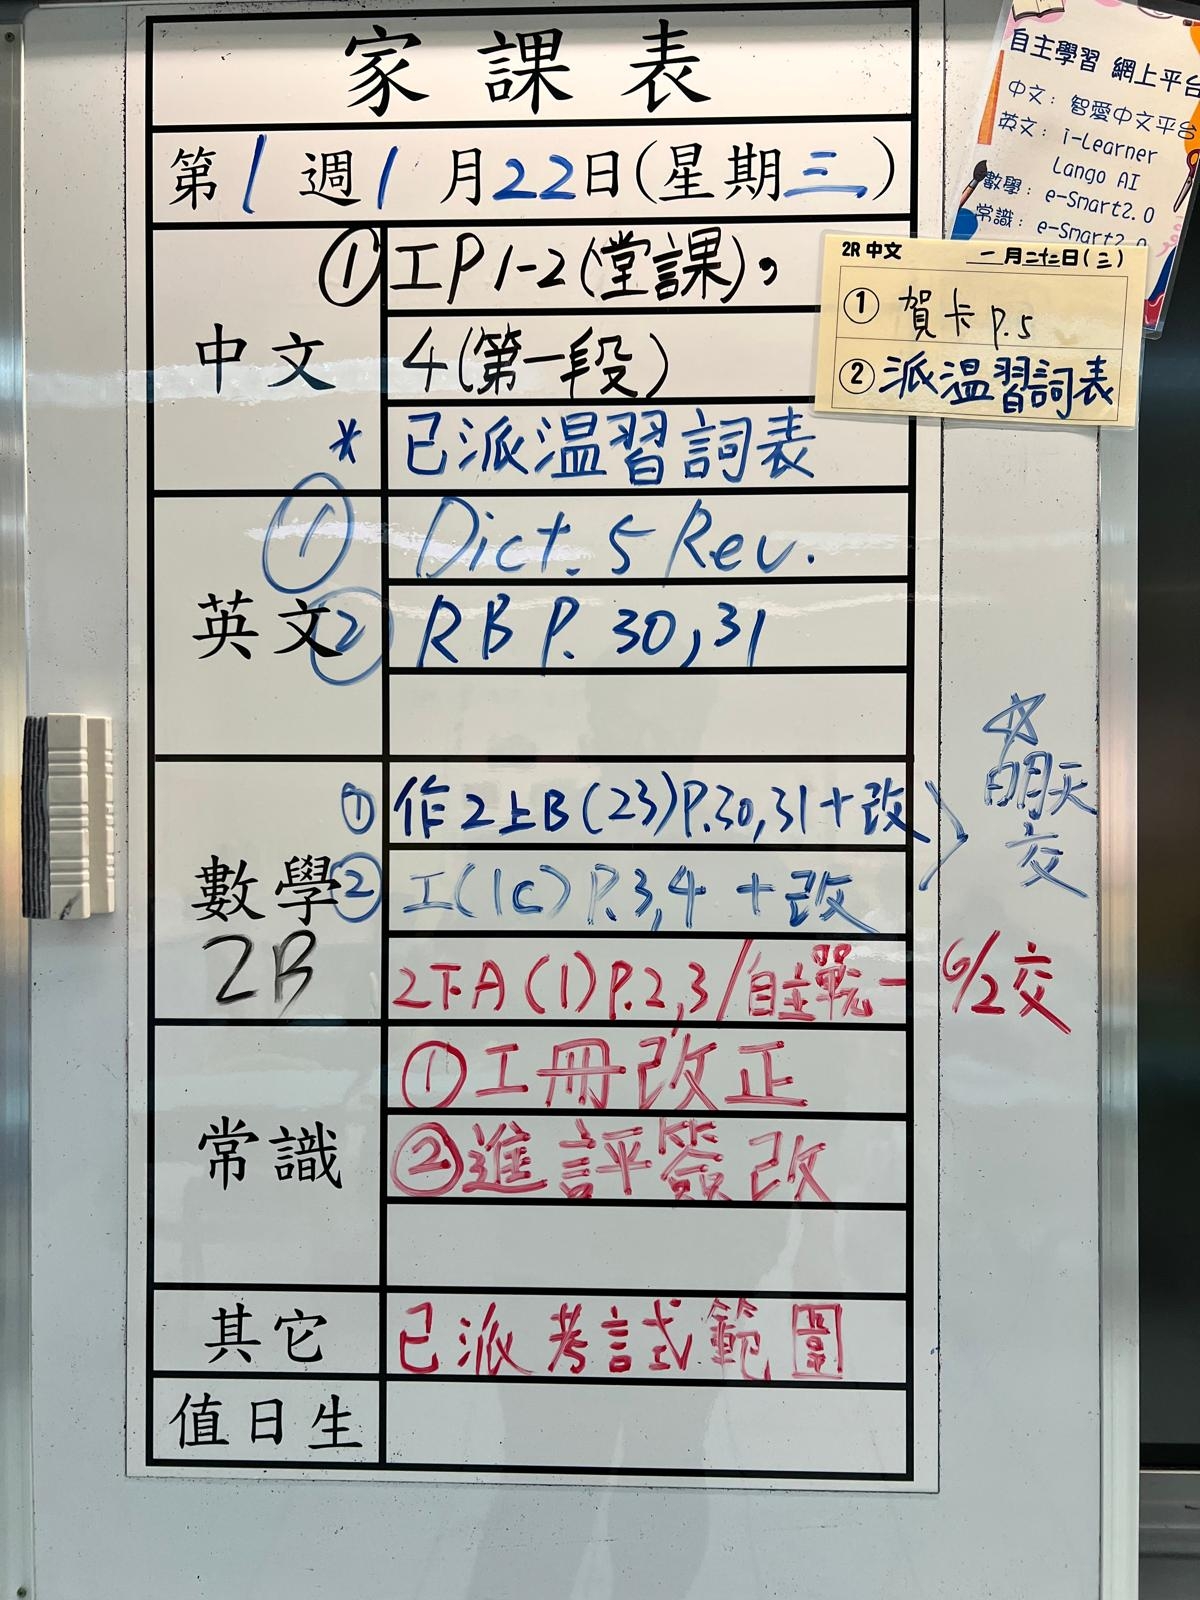 家課表
第1週1月22日(星期三)
中文
①工P1-2(堂課),
4(第一段)
*已派温習詞表
英文
①Dict. 5 Rev.
②RB P. 30,31
數學
2B
①作2上B(23)P.30,31+改
②工(1c)P.3,4 +改
☆明天交
2下A(1)P.2,3/自主戰一 6/2交
常識
①工冊改正
②進評簽改
其它
已派考試範圍
值日生
自主學習 網上平台
中文：智愛中文平台
英文：i-Learner
Lango AI
數學：e-Smart2.0
常識：e-Smart2.0
2R 中文 一月二十二日(三)
① 賀卡 p.5
② 派温習詞表